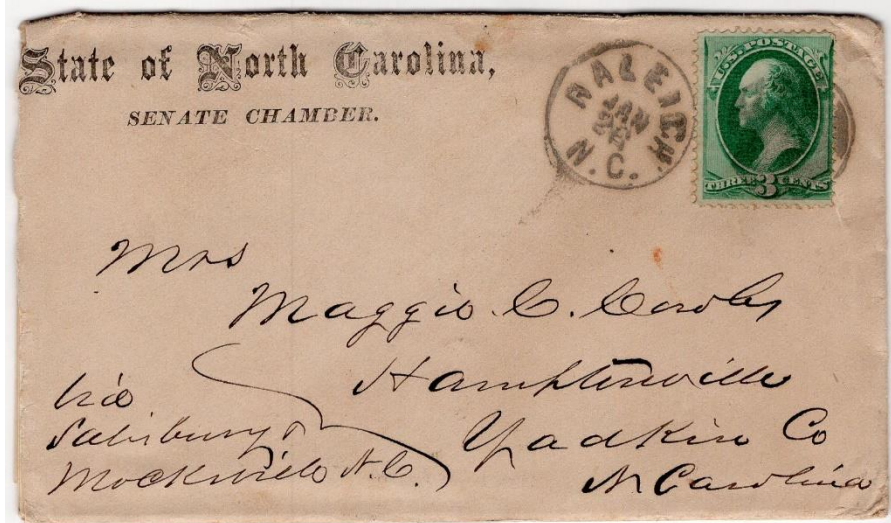 State of North Carolina,
SENATE CHAMBER.
RALEIGH
JAN
N.C.
U.S. POSTAGE
THREE 3 CENTS
Mrs
Maggie C. Cowles
Hamptonville
Yadkin Co
N Carolina
via
Salisbury &
Mocksville N.C.